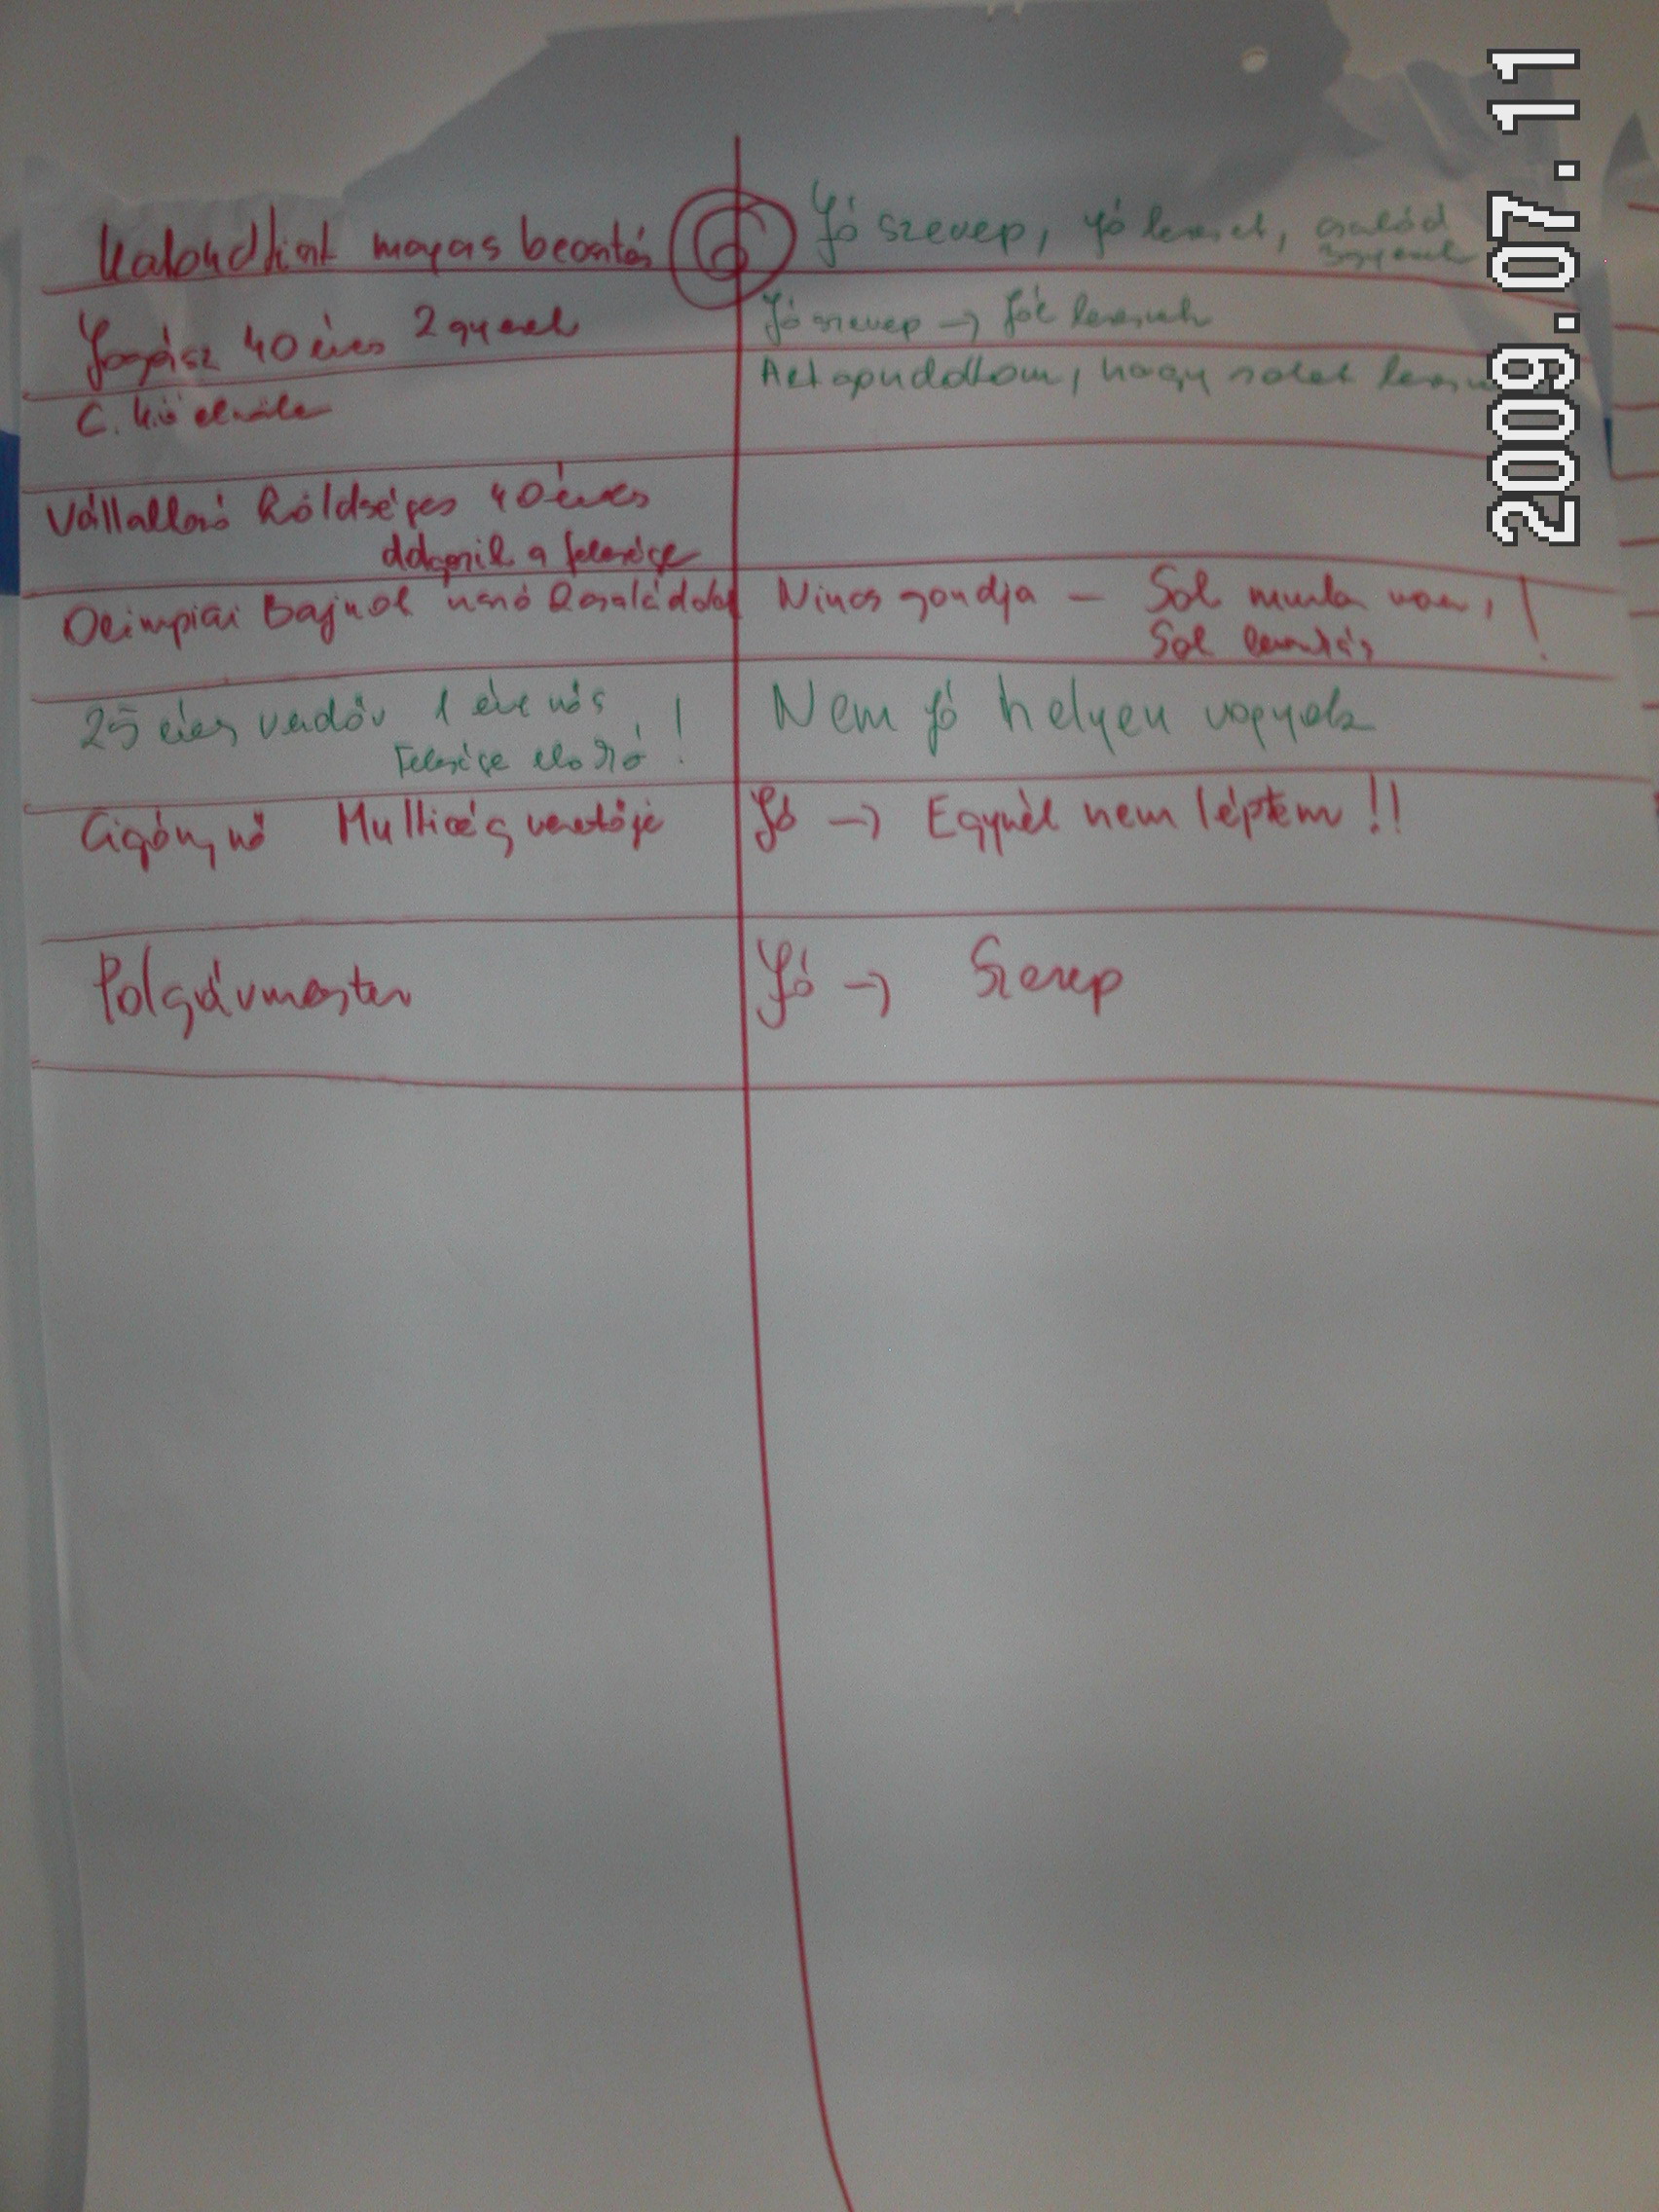 magas beosztás
Jó szerep, jó kereset, család
3 gyerek
Jogász 40 éves 2 gyerek
Jó szerep → Jól keresek
C. kó elnöke
hogy sokat
Vállalkozó Zöldséges 40 éves
dolgozik a felesége
Olimpiai Bajnok úszó 2 családdal
Nincs gondja - Sok munka van, !
Sok
25 éves rendőr 1 éve nős
Felesége eladó !
Nem jó helyen vagyok
Cigány nő Multicég vezetője
Jó → Egynél nem léptem !!
Polgármester
Jó → Szerep
2009.07.11